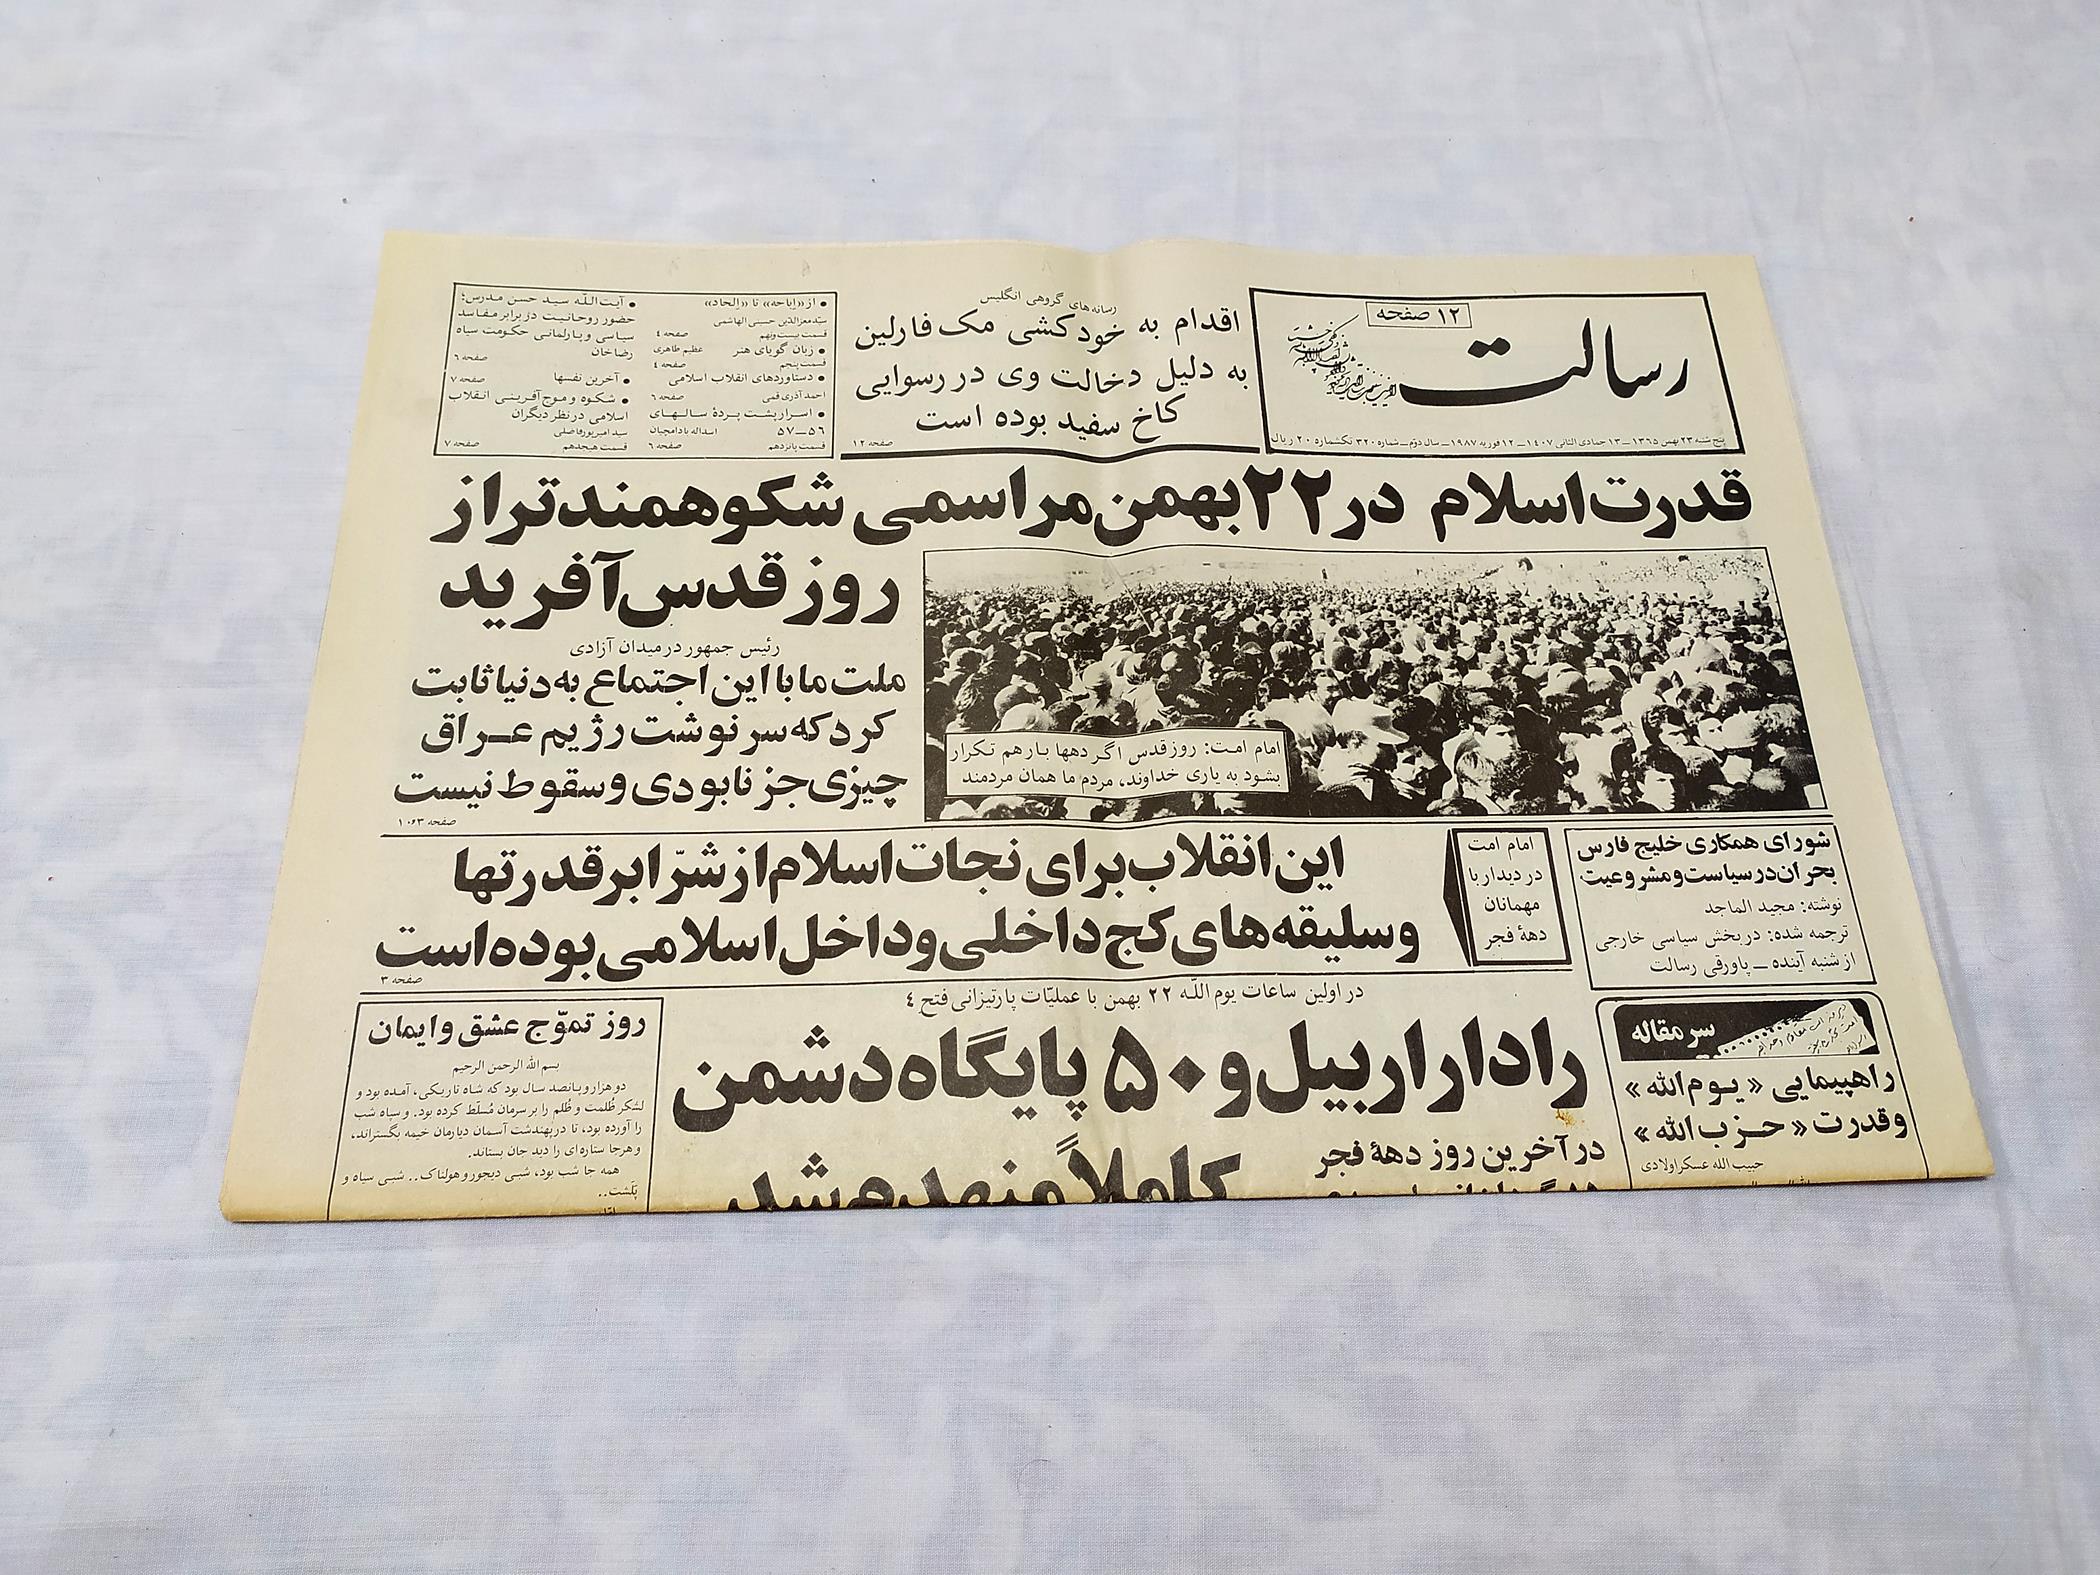 ۱۲ صفحه
رسالت
پنج شنبه ۲۳ بهمن ۱۳۶۵ــ ۱۳ جمادی الثانی ۱۴۰۷ــ ۱۲ فوریه ۱۹۸۷ــ سال دوّم ــ شماره ۳۲۰ تکشماره ۲۰ ریال
رسانه های گروهی انگلیس
اقدام به خودکشی مک فارلین
به دلیل دخالت وی در رسوایی
کاخ سفید بوده است
صفحه ۱۲
• از «اباحه» تا «الحاد»
سیّد معزالدّین حسینی الهاشمی
قسمت بیست و نهم صفحه ۴
• زبان گویای هنر عظیم طاهری
قسمت پنجم صفحه ۴
• دستاوردهای انقلاب اسلامی
احمد آذری قمی صفحه ۶
• اسرار پشت پردهٔ سالهای
۵۶ــ۵۷ اسداله بادامچیان
قسمت پانزدهم صفحه ۶
• آیت اللّه سید حسن مدرس؛
حضور روحانیت در برابر مفاسد
سیاسی و پارلمانی حکومت سیاه
رضاخان
صفحه ۶
• آخرین نفسها صفحه ۷
• شکوه و موج آفرینی انقلاب
اسلامی در نظر دیگران
سید امیر پورفاضلی
قسمت هیجدهم صفحه ۷
قدرت اسلام در ۲۲ بهمن مراسمی شکوهمندتر از
روز قدس آفرید
رئیس جمهور در میدان آزادی
ملت ما با این اجتماع به دنیا ثابت
کرد که سرنوشت رژیم عراق
چیزی جز نابودی و سقوط نیست
صفحه ۳و۱۰
امام امت: روز قدس اگر دهها بار هم تکرار
بشود به یاری خداوند، مردم ما همان مردمند
شورای همکاری خلیج فارس
بحران در سیاست و مشروعیت
نوشته: مجید الماجد
ترجمه شده: در بخش سیاسی خارجی
از شنبه آینده ــ پاورقی رسالت
امام امت
در دیدار با
مهمانان
دههٔ فجر
این انقلاب برای نجات اسلام از شرّ ابرقدرتها
و سلیقه های کج داخلی و داخل اسلامی بوده است
صفحه ۳
سرمقاله
راهپیمایی «یوم الله»
و قدرت «حزب الله»
حبیب الله عسکراولادی
در اولین ساعات یوم اللّه ۲۲ بهمن با عملیّات پارتیزانی فتح ۴
رادار اربیل و ۵۰ پایگاه دشمن
کاملاً منهدم شد
در آخرین روز دههٔ فجر
روز تموّج عشق و ایمان
بسم الله الرحمن الرحیم
دو هزار و پانصد سال بود که شاه تاریکی، آمده بود و
لشکر ظُلمت و ظُلم را بر سرمان مُسلّط کرده بود. و سپاه شب
را آورده بود، تا در پهندشت آسمان دیارمان خیمه بگستراند،
و هرجا ستاره ای را دید جان بستاند.
همه جا شب بود، شبی دیجور و هولناک.. شبی سیاه و
پَلَشت..